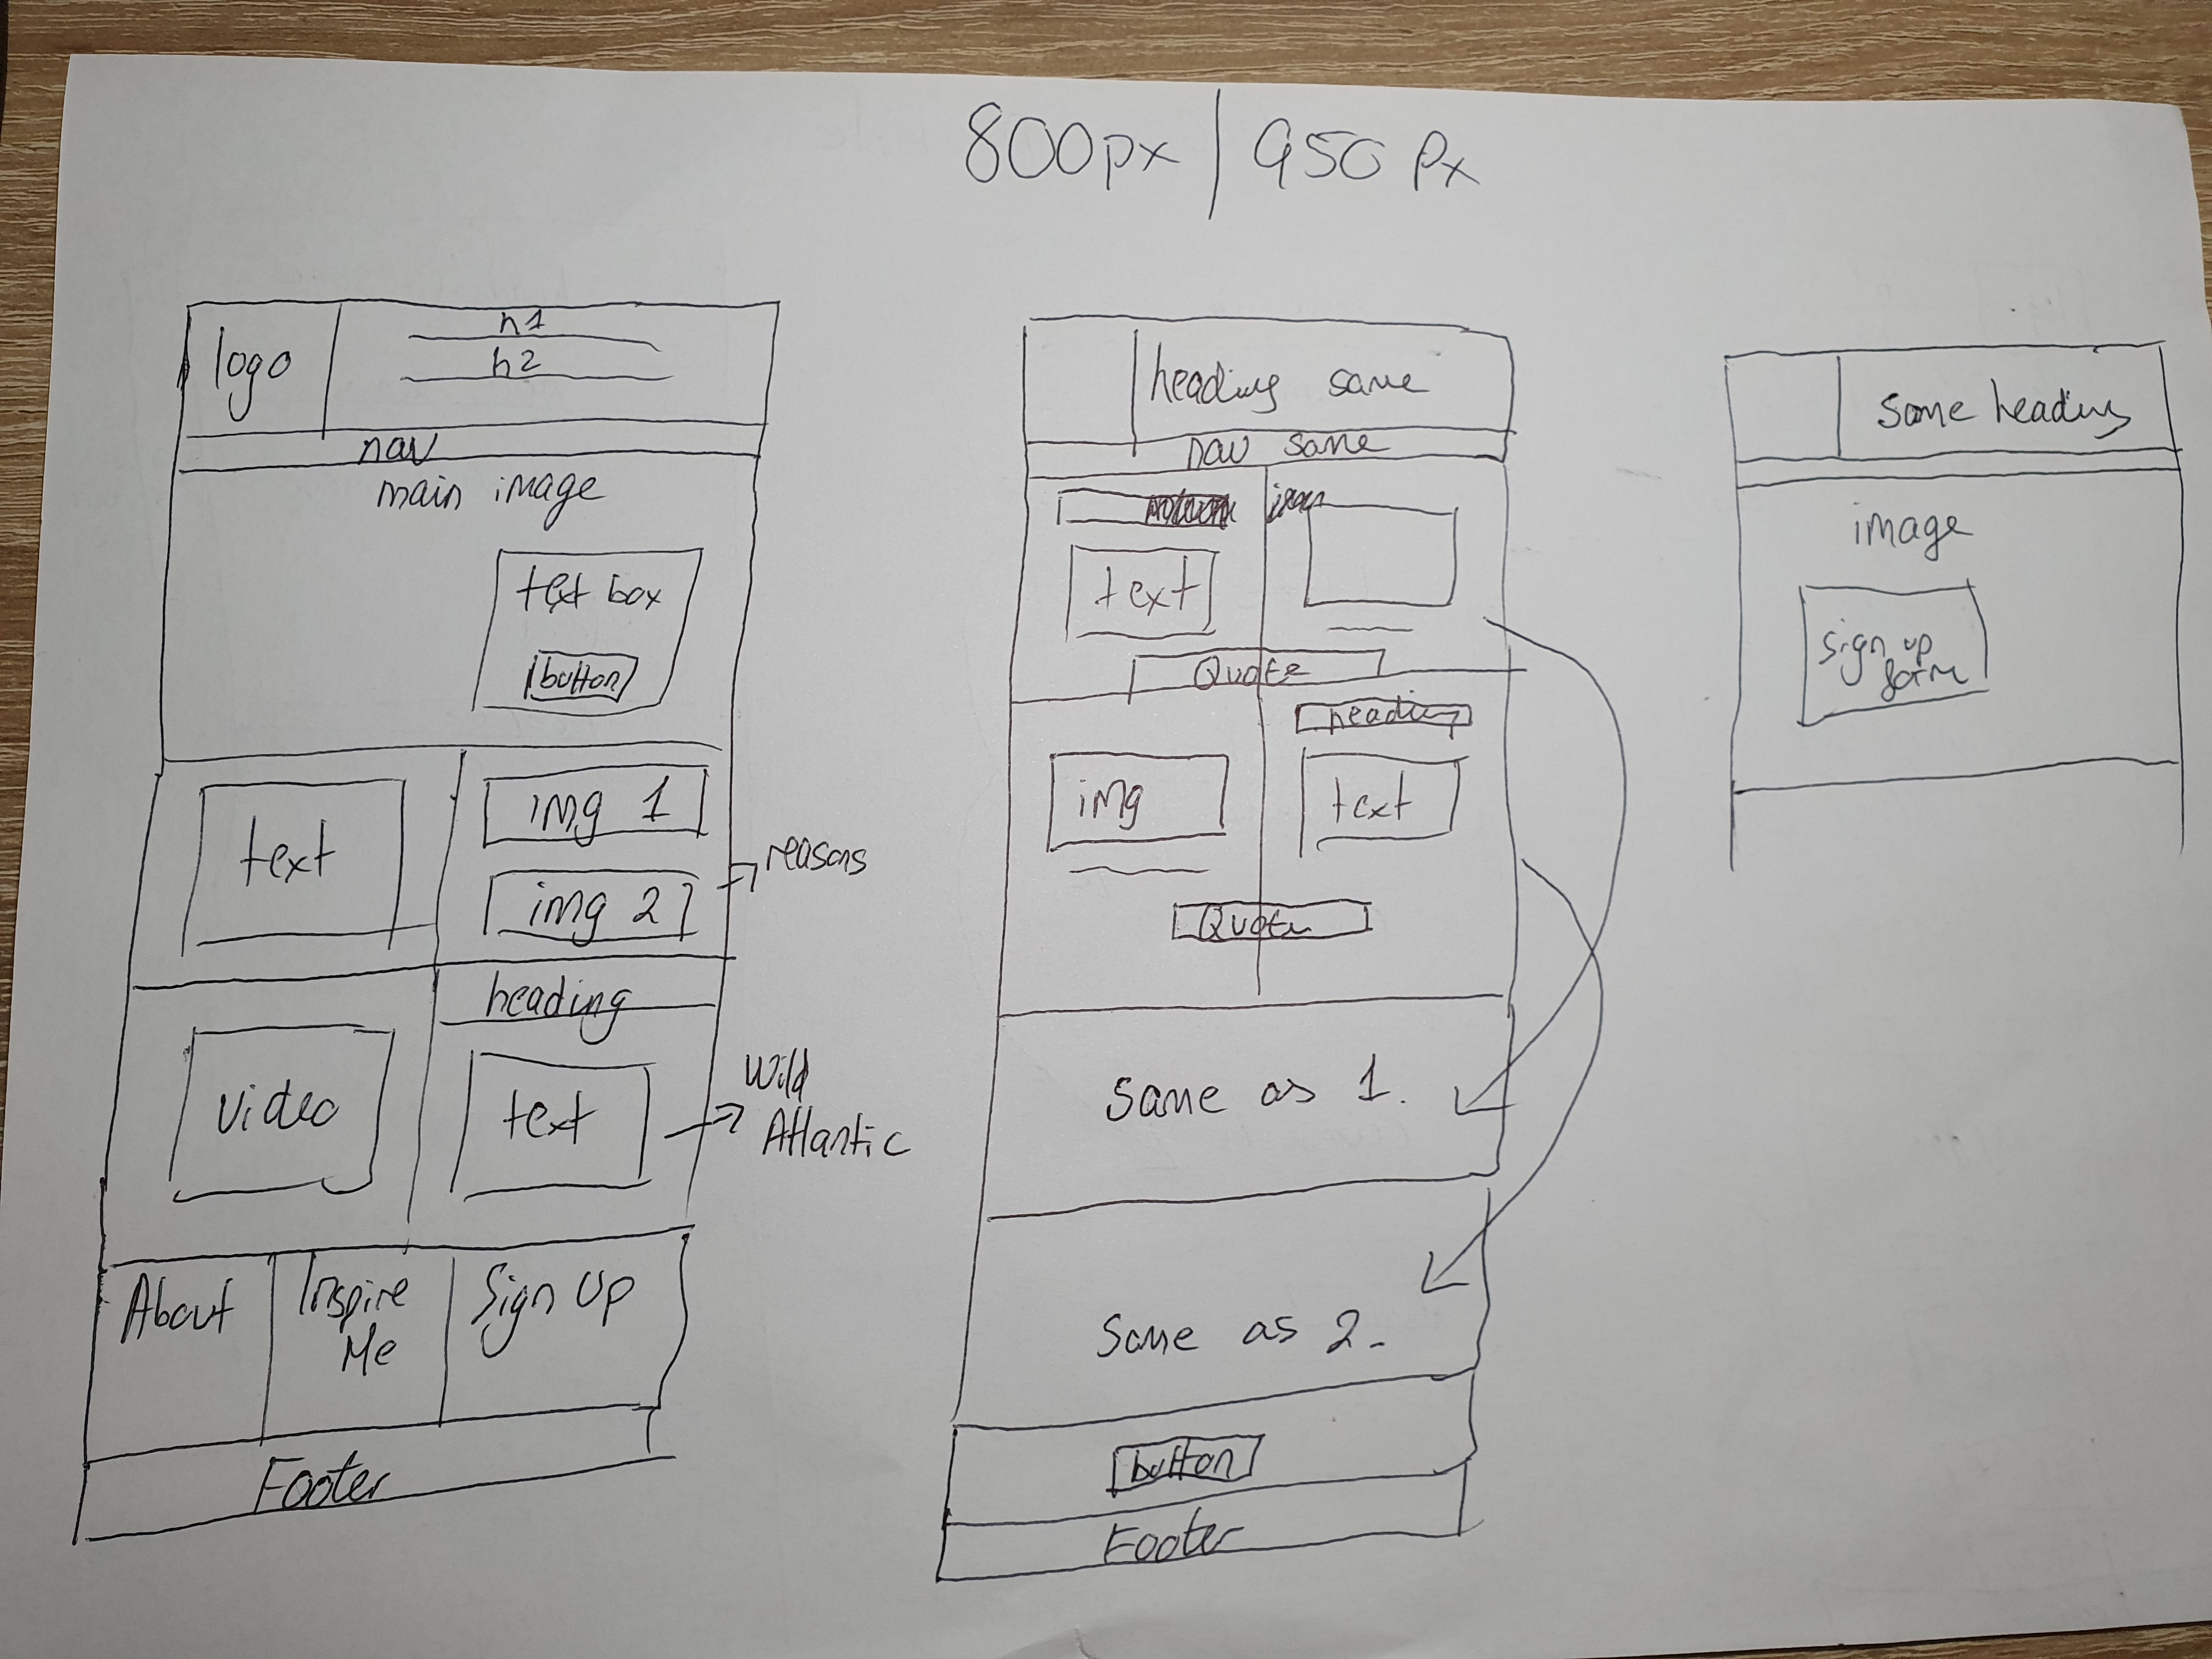 800px | 950 Px
logo
h1
h2
nav
main image
text box
button
text
img 1
img 2
reasons
heading
video
text
Wild
Atlantic
About
Inspire
Me
Sign Up
Footer
heading same
nav same
text
Quote
heading
img
text
Quote
Same as 1.
Same as 2.
button
Footer
Same heading
image
Sign up
form